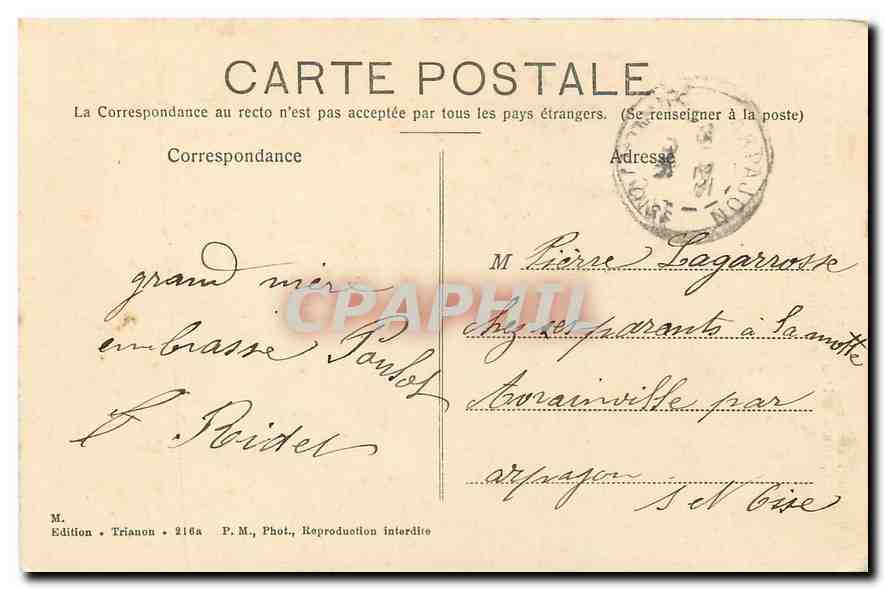 CARTE POSTALE
La Correspondance au recto n'est pas acceptée par tous les pays étrangers. (Se renseigner à la poste)
Correspondance
grand mère
embrasse Poulot
E Ridel
Adresse
ARPAJON
M Pierre Lagarrosse
chez ses parants à Lamotte
Avrainville par
arpajon
S et Oise
CPAPHIL
M.
Edition • Trianon • 216a P. M., Phot., Reproduction interdite